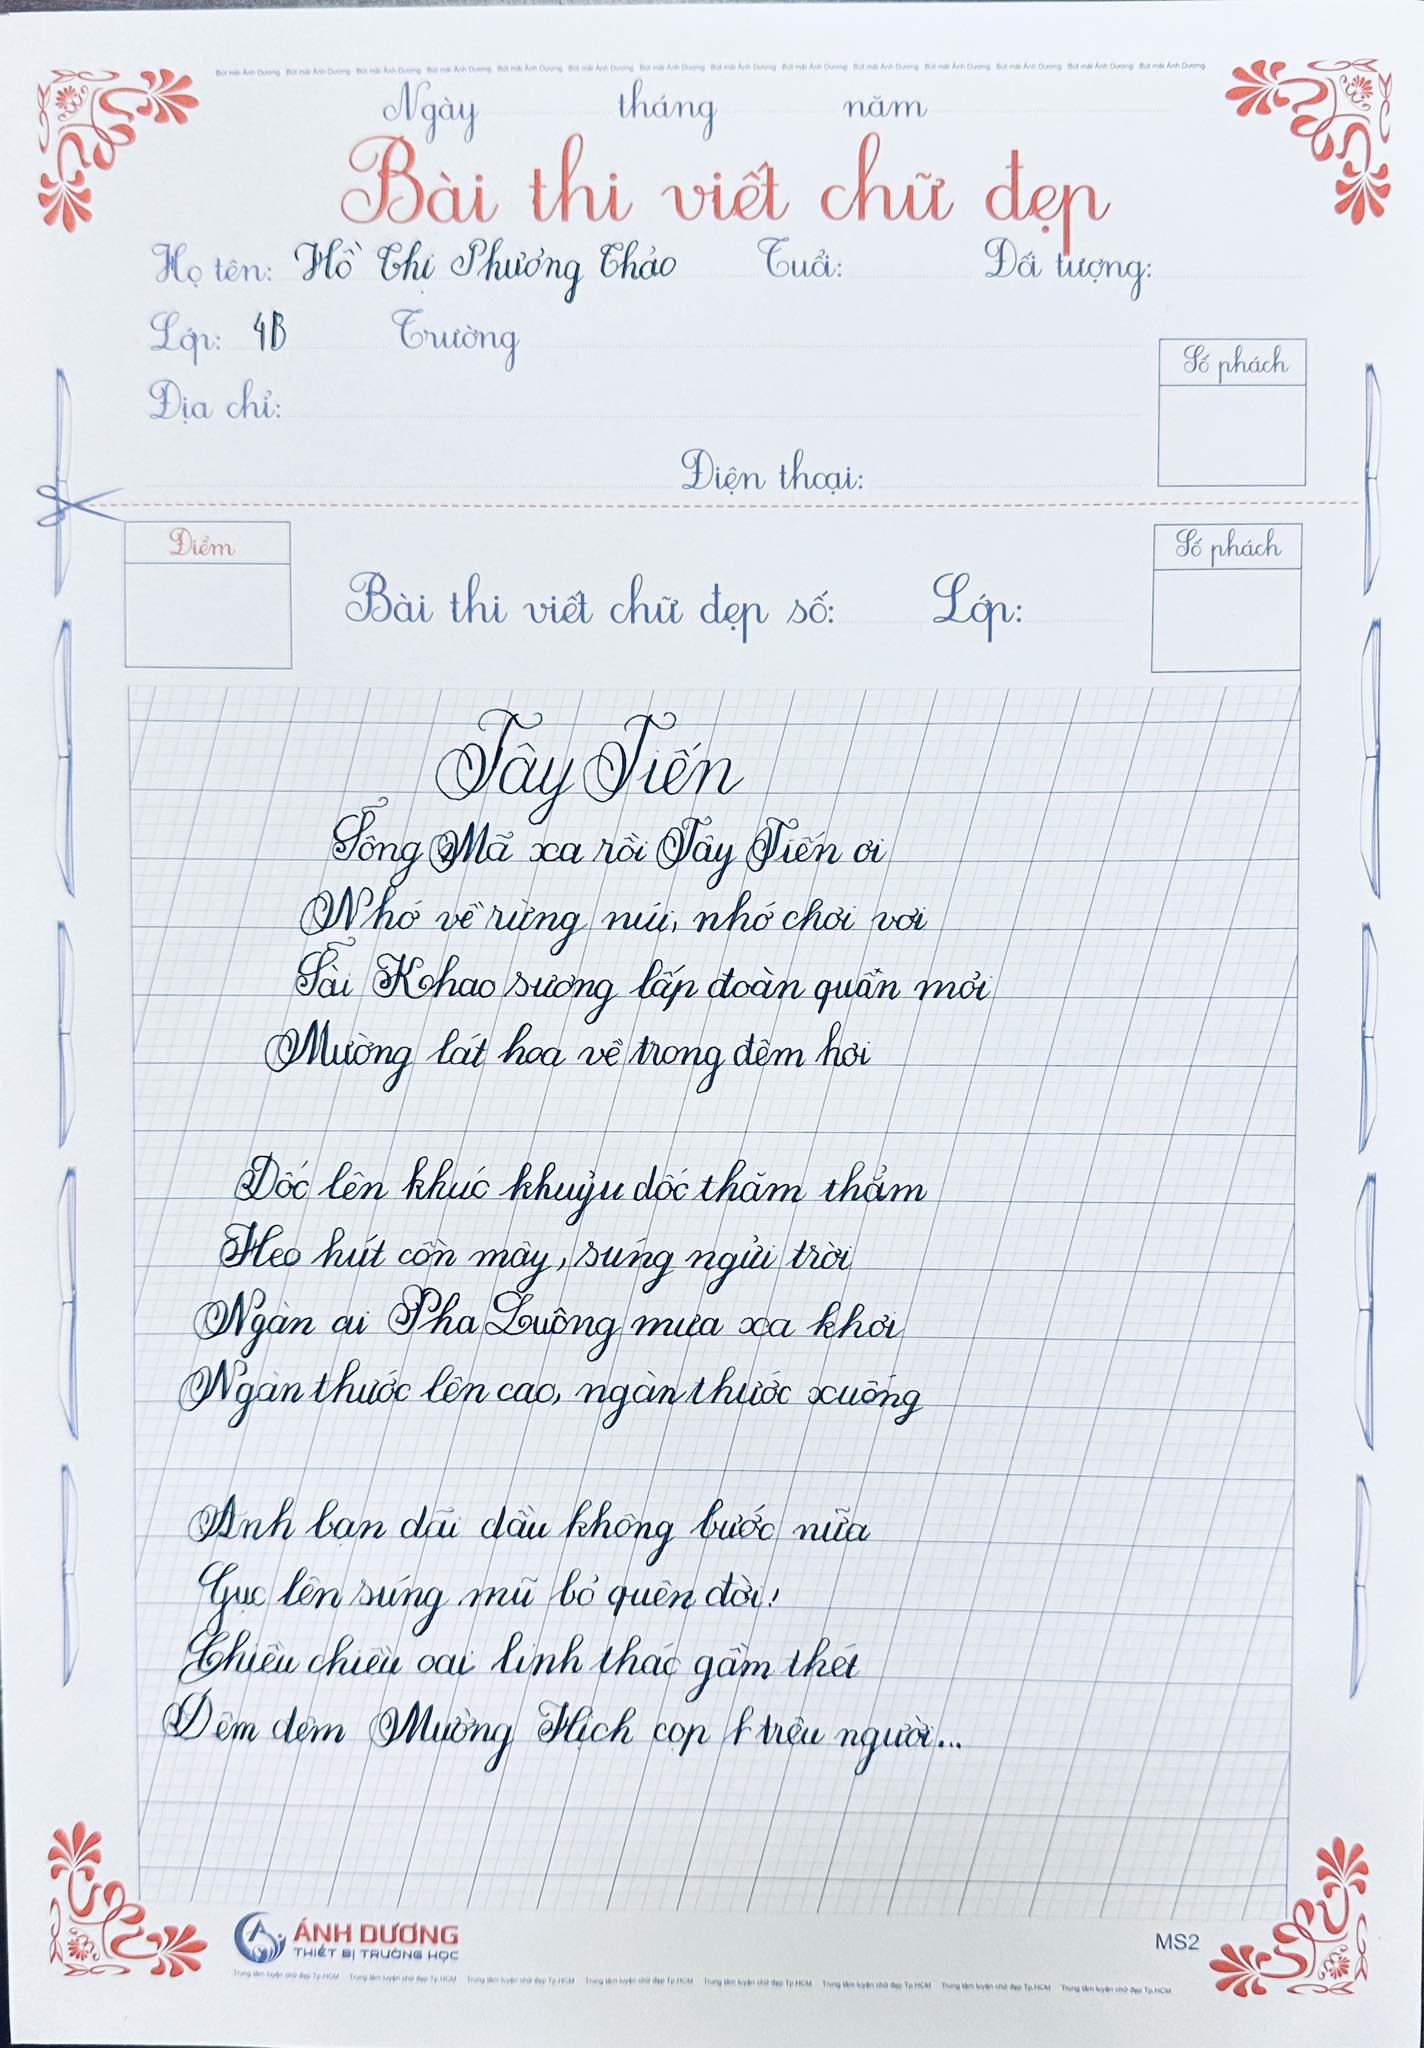 Bút mài Ánh Dương Bút mài Ánh Dương Bút mài Ánh Dương Bút mài Ánh Dương Bút mài Ánh Dương Bút mài Ánh Dương Bút mài Ánh Dương Bút mài Ánh Dương Bút mài Ánh Dương Bút mài Ánh Dương Bút mài Ánh Dương Bút mài Ánh Dương Bút mài Ánh Dương Bút mài Ánh Dương
Ngày tháng năm
Bài thi viết chữ đẹp
Họ tên: Hồ Thị Phương Thảo Tuổi: Đối tượng:
Lớp: 4B Trường
Số phách
Địa chỉ:
Điện thoại:
Điểm
Số phách
Bài thi viết chữ đẹp số: Lớp:
Tây Tiến
Sông Mã xa rồi Tây Tiến ơi
Nhớ về rừng núi, nhớ chơi vơi
Sài Khao sương lấp đoàn quân mỏi
Mường lát hoa về trong đêm hơi
Dốc lên khúc khuỷu dốc thăm thẳm
Heo hút cồn mây, súng ngửi trời
Ngàn ai Pha Luông mưa xa khơi
Ngàn thước lên cao, ngàn thước xuống
Anh bạn dãi dầu không bước nữa
Gục lên súng mũ bỏ quên đời!
Chiều chiều oai linh thác gầm thét
Đêm đêm Mường Hịch cọp trêu người...
ÁNH DƯƠNG
THIẾT BỊ TRƯỜNG HỌC
MS2
Trung tâm luyện chữ đẹp Tp.HCM Trung tâm luyện chữ đẹp Tp.HCM Trung tâm luyện chữ đẹp Tp.HCM Trung tâm luyện chữ đẹp Tp.HCM Trung tâm luyện chữ đẹp Tp.HCM Trung tâm luyện chữ đẹp Tp.HCM Trung tâm luyện chữ đẹp Tp.HCM Trung tâm luyện chữ đẹp Tp.HCM